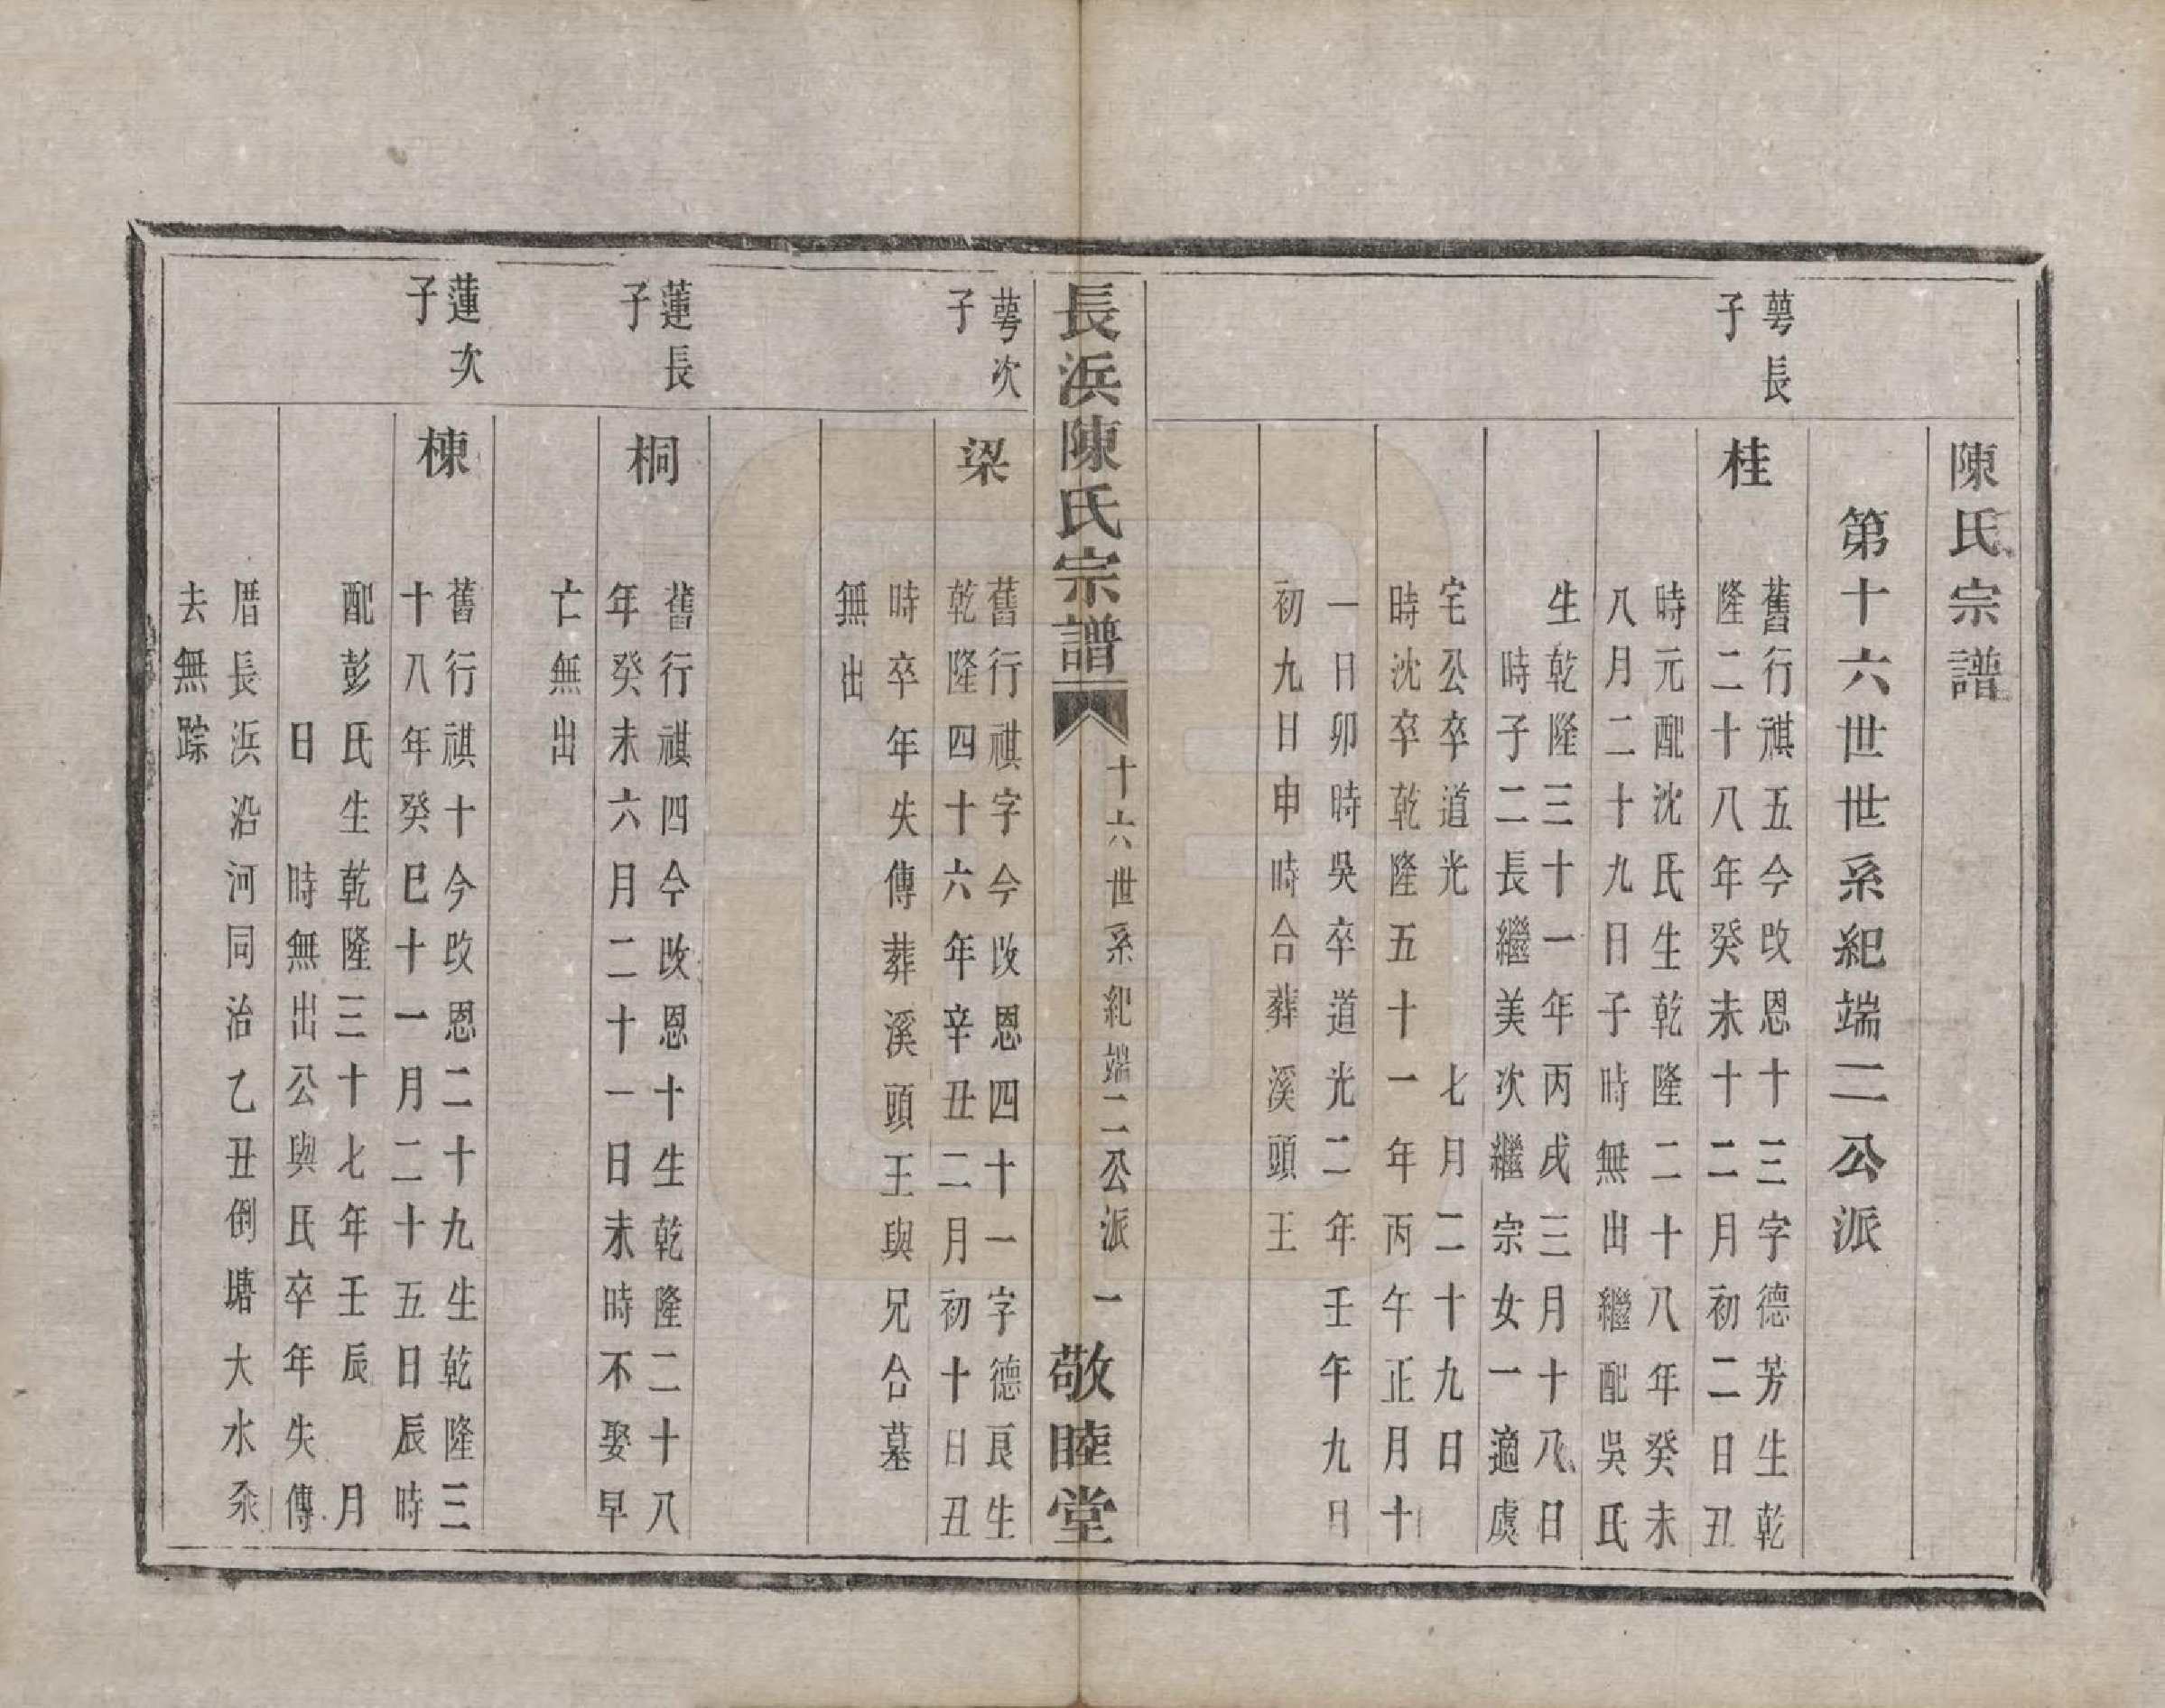 陳氏宗譜
第十六世世系紀端二公派
萼長
子
桂
舊行祺五今改恩十三字德芳生乾
隆二十八年癸未十二月初二日丑
時元配沈氏生乾隆二十八年癸未
八月二十九日子時無出繼配吳氏
生乾隆三十一年丙戌三月十八日
時子二長繼美次繼宗女一適虞
宅公卒道光 七月二十九日
時沈卒乾隆五十一年丙午正月十
一日卯時吳卒道光二年壬午九月
初九日申時合葬溪頭王
長浜陳氏宗譜
十六世系紀端二公派 一
敬睦堂
萼次
子
梁
舊行祺字今改恩四十一字德良生
乾隆四十六年辛丑二月初十日丑
時卒年失傳葬溪頭王與兄合墓
無出
蓮長
子
桐
舊行祺四今改恩十生乾隆二十八
年癸未六月二十一日未時不娶早
亡無出
蓮次
子
棟
舊行祺十今改恩二十九生乾隆三
十八年癸巳十一月二十五日辰時
配彭氏生乾隆三十七年壬辰 月
日 時無出公與氏卒年失傳
厝長浜沿河同治乙丑倒塘大水氽
去無踪